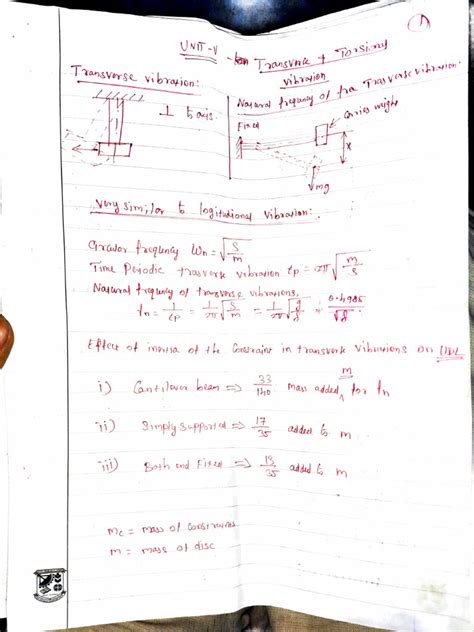 1
UNIT-V Transverse & Torsional
vibration
Transverse vibration:
Natural frequency of fra Trasverse vibration:
⊥ to axis
Fixed
Carries weight
x
mg
Very similar to logitudional vibration:
frequency Wn = √(S/m)
Time Periodic trasverse vibration tp = 2π√(m/s)
Natural frequency of transverse vibrations,
fn = 1/tp = 1/2π √(S/m) = 1/2π √(g/δ) = 0.4985/√δ
Effect of inertia of the constraint in transverse vibrations on UDL
i) Cantilever beam ⇒ 33/140 mass added m for fn
ii) Simply supported ⇒ 17/35 added to m
iii) Both end Fixed ⇒ 13/35 added to m
mc = mass of constraints
m = mass of disc